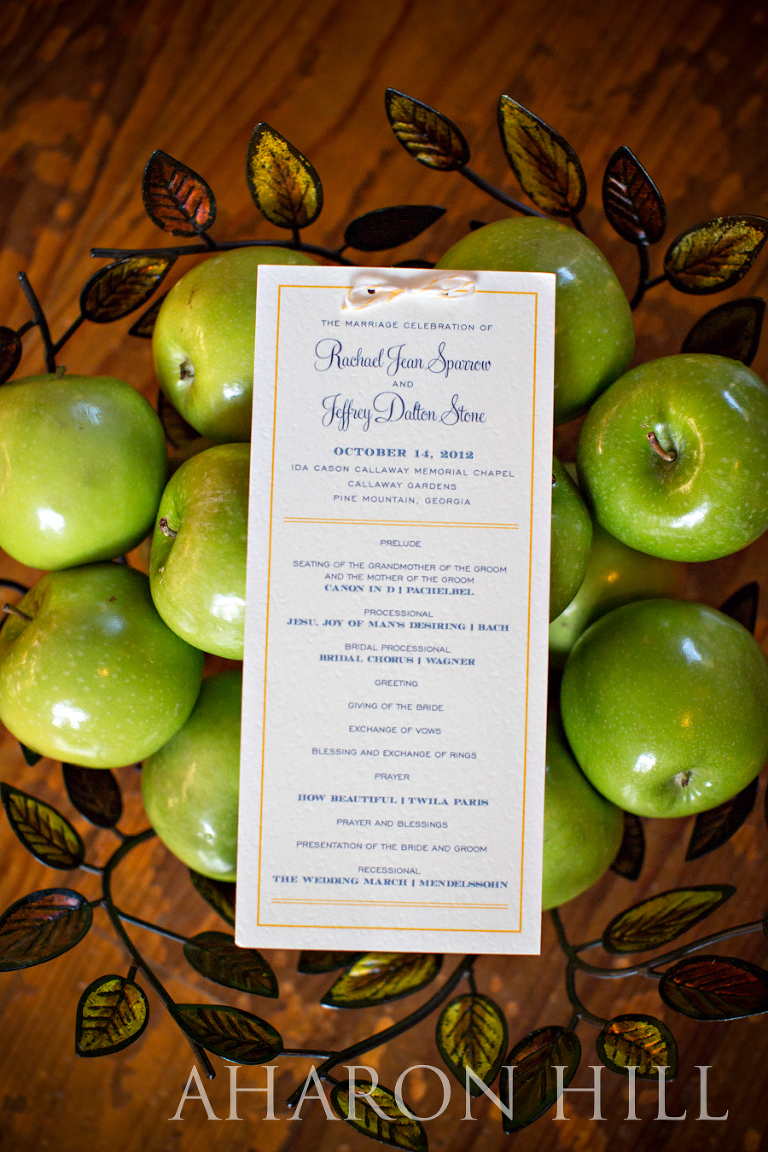 THE MARRIAGE CELEBRATION OF
Rachael Jean Sparrow
AND
Jeffrey Dalton Stone
OCTOBER 14, 2012
IDA CASON CALLAWAY MEMORIAL CHAPEL
CALLAWAY GARDENS
PINE MOUNTAIN, GEORGIA
PRELUDE
SEATING OF THE GRANDMOTHER OF THE GROOM
AND THE MOTHER OF THE GROOM
CANON IN D | PACHELBEL
PROCESSIONAL
JESU, JOY OF MAN'S DESIRING | BACH
BRIDAL PROCESSIONAL
BRIDAL CHORUS | WAGNER
GREETING
GIVING OF THE BRIDE
EXCHANGE OF VOWS
BLESSING AND EXCHANGE OF RINGS
PRAYER
HOW BEAUTIFUL | TWILA PARIS
PRAYER AND BLESSINGS
PRESENTATION OF THE BRIDE AND GROOM
RECESSIONAL
THE WEDDING MARCH | MENDELSSOHN
AHARON HILL